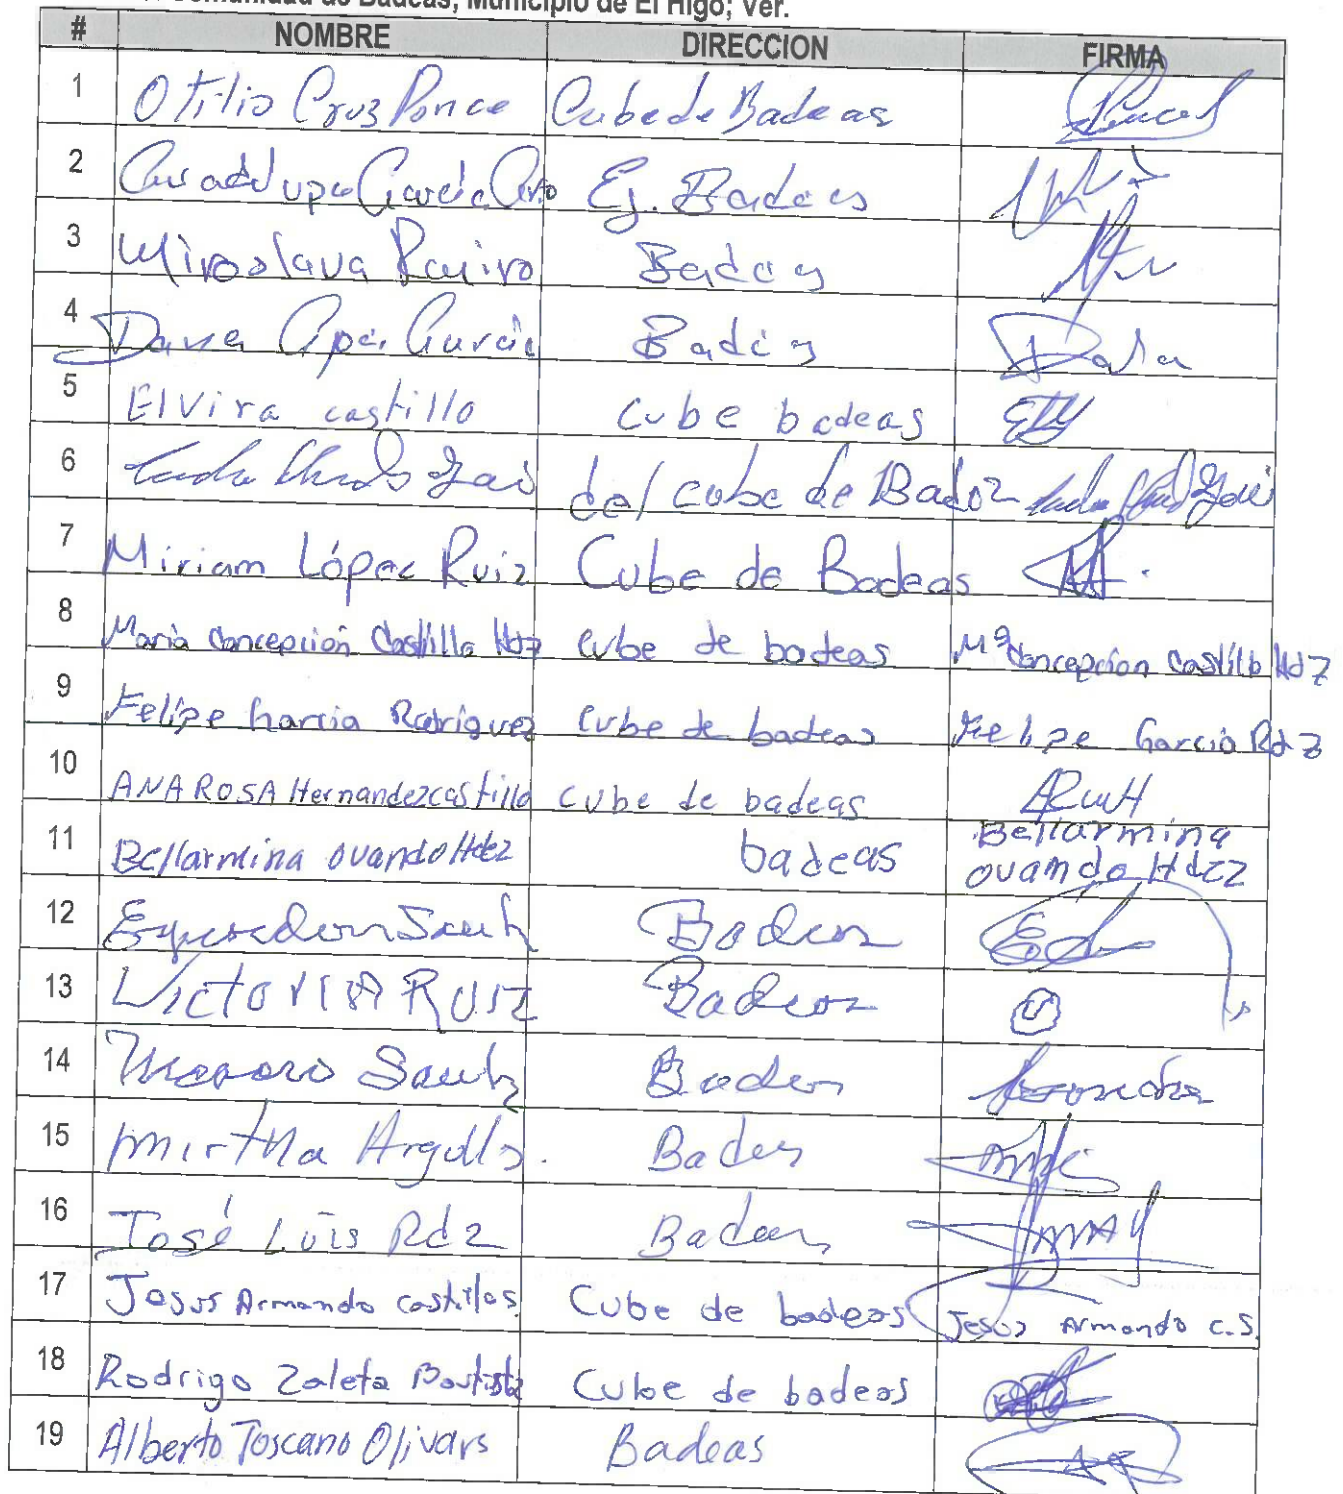 Comunidad de Badeas, Municipio de El Higo; Ver.
# NOMBRE DIRECCION FIRMA
1 Otilio Cruz Ponce Cube de Badeas
2 Guadalupe García Ej. Badeas
3 Miroslava Ramiro Badeas
4 García Badeas
5 Elvira castillo cube badeas
6 del cube de
7 Miriam López Ruiz Cube de Badeas
8 Maria Concepcion Castillo Hdz cube de badeas Mª Concepcion Castillo Hdz
9 Felipe Garcia Rodriguez cube de badeas Felipe Garcia Rdz
10 ANA ROSA Hernandez castillo cube de badeas
11 Bellarmina ovando Hdez badeas Bellarmina
ovando Hdez
12 Badeas
13 Victoria RUIZ Badeas
14 Badeas
15 Mirtha Badeas
16 José Luis Rdz Badeas
17 Jesus Armando castillos Cube de badeas Jesus Armando C.S.
18 Rodrigo Zaleta Bautista Cube de badeas
19 Alberto Toscano Olivars Badeas